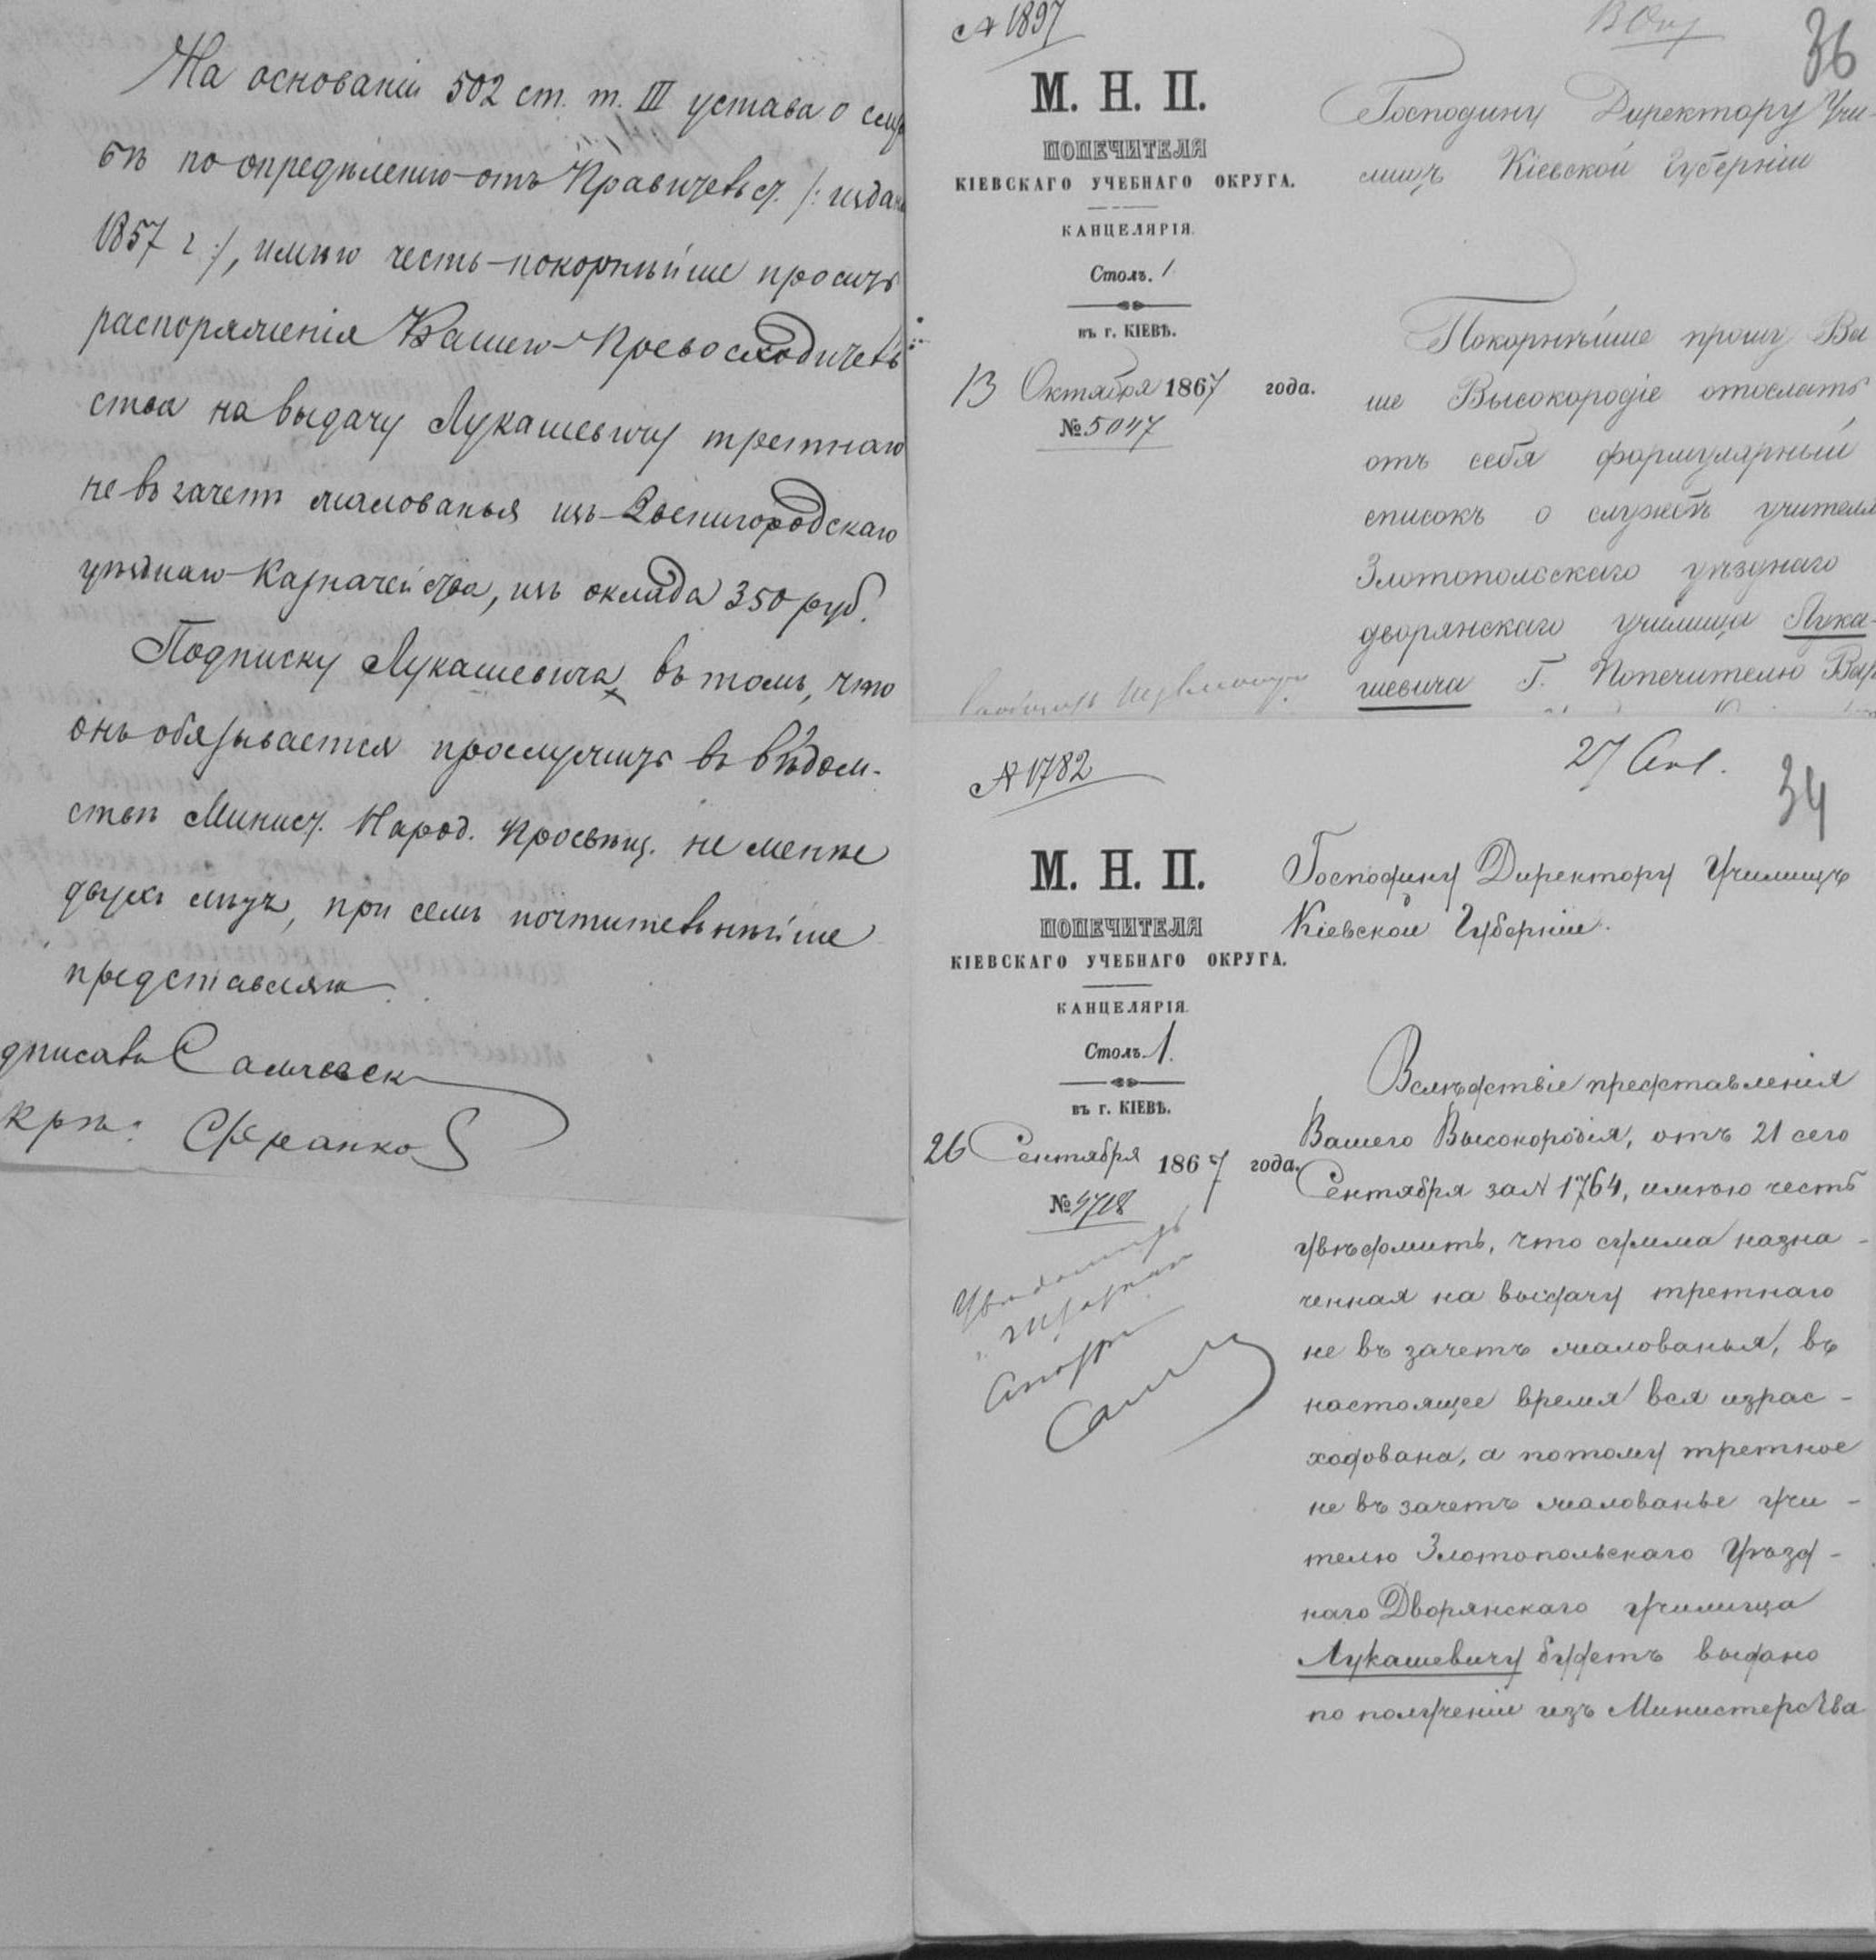 На основаніи 502 ст. т. III устава о служ
бѣ по опредѣленію отъ Правительст. /: издан
1857 г :/, имѣю честь покорнѣйше просить
распоряженія Вашего Превосходитель
ства на выдачу Лукашевичу третнаго
не въ зачетъ жалованья изъ Звенигородскаго
уѣзднаго Казначейства, изъ оклада 350 руб.
Подписку Лукашевича въ томъ, что
онъ обязывается прослужить въ вѣдом-
ствѣ Минист. Народ. Просвѣщ. не менѣе
двухъ лѣтъ, при семъ почтительнѣйше
представляю.
дписалъ
крѣп:
№ 1897
36
М. Н. П.
ПОПЕЧИТЕЛЯ
КІЕВСКАГО УЧЕБНАГО ОКРУГА.
КАНЦЕЛЯРІЯ.
Столъ. 1
въ г. КІЕВѢ.
13 Октября 1867 года.
№ 5047
Господину Директору Учи-
лищъ Кіевской Губерніи
Покорнѣйше прошу Ва
ше Высокородіе отослать
отъ себя формулярный
списокъ о службѣ учителя
Златопольскаго уѣзднаго
дворянскаго училища Лука-
шевича Г. Попечителю Вар
№ 1782
27 Сент.
34
М. Н. П.
ПОПЕЧИТЕЛЯ
КІЕВСКАГО УЧЕБНАГО ОКРУГА.
КАНЦЕЛЯРІЯ.
Столъ 1.
въ г. КІЕВѢ.
26 Сентября 1867 года.
№ 4718
Господину Директору Училищъ
Кіевской Губерніи.
Вслѣдствіе представленія
Вашего Высокородія, отъ 21 сего
Сентября за № 1764, имѣю честь
увѣдомить, что сумма назна-
ченная на выдачу третнаго
не въ зачетъ жалованья, въ
настоящее время вся израс-
ходована, а потому третное
не въ зачетъ жалованье учи-
телю Златопольскаго Уѣзд-
наго Дворянскаго училища
Лукашевичу будетъ выдано
по полученіи изъ Министерства